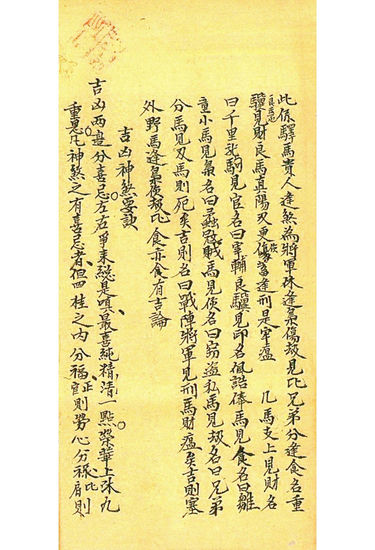 此係驛馬貴人逢煞為將軍殊逢梟傷劫見比兄弟分逢食名重
驥見財良馬真陽刃更傷蓄逢刑是牢瘟 凡馬支上見財名
曰千里駒見官名曰宰輔良驥見印名佩誥俸馬見食名曰雛
童小馬見梟名曰戰馬見使名曰窃盜私馬見劫名曰兄弟
分馬見刃馬則死矣吉則名曰戰陣將軍見刑馬財瘟矣吉則塞
外野馬逢梟使劫比食亦食有吉論
吉凶神煞要訣
吉凶兩邊分喜忌左右尋來總是嗔最喜純精清一點榮華上
重見比神煞之有喜忌者但四柱之內分福官則勞心分祿比肩則